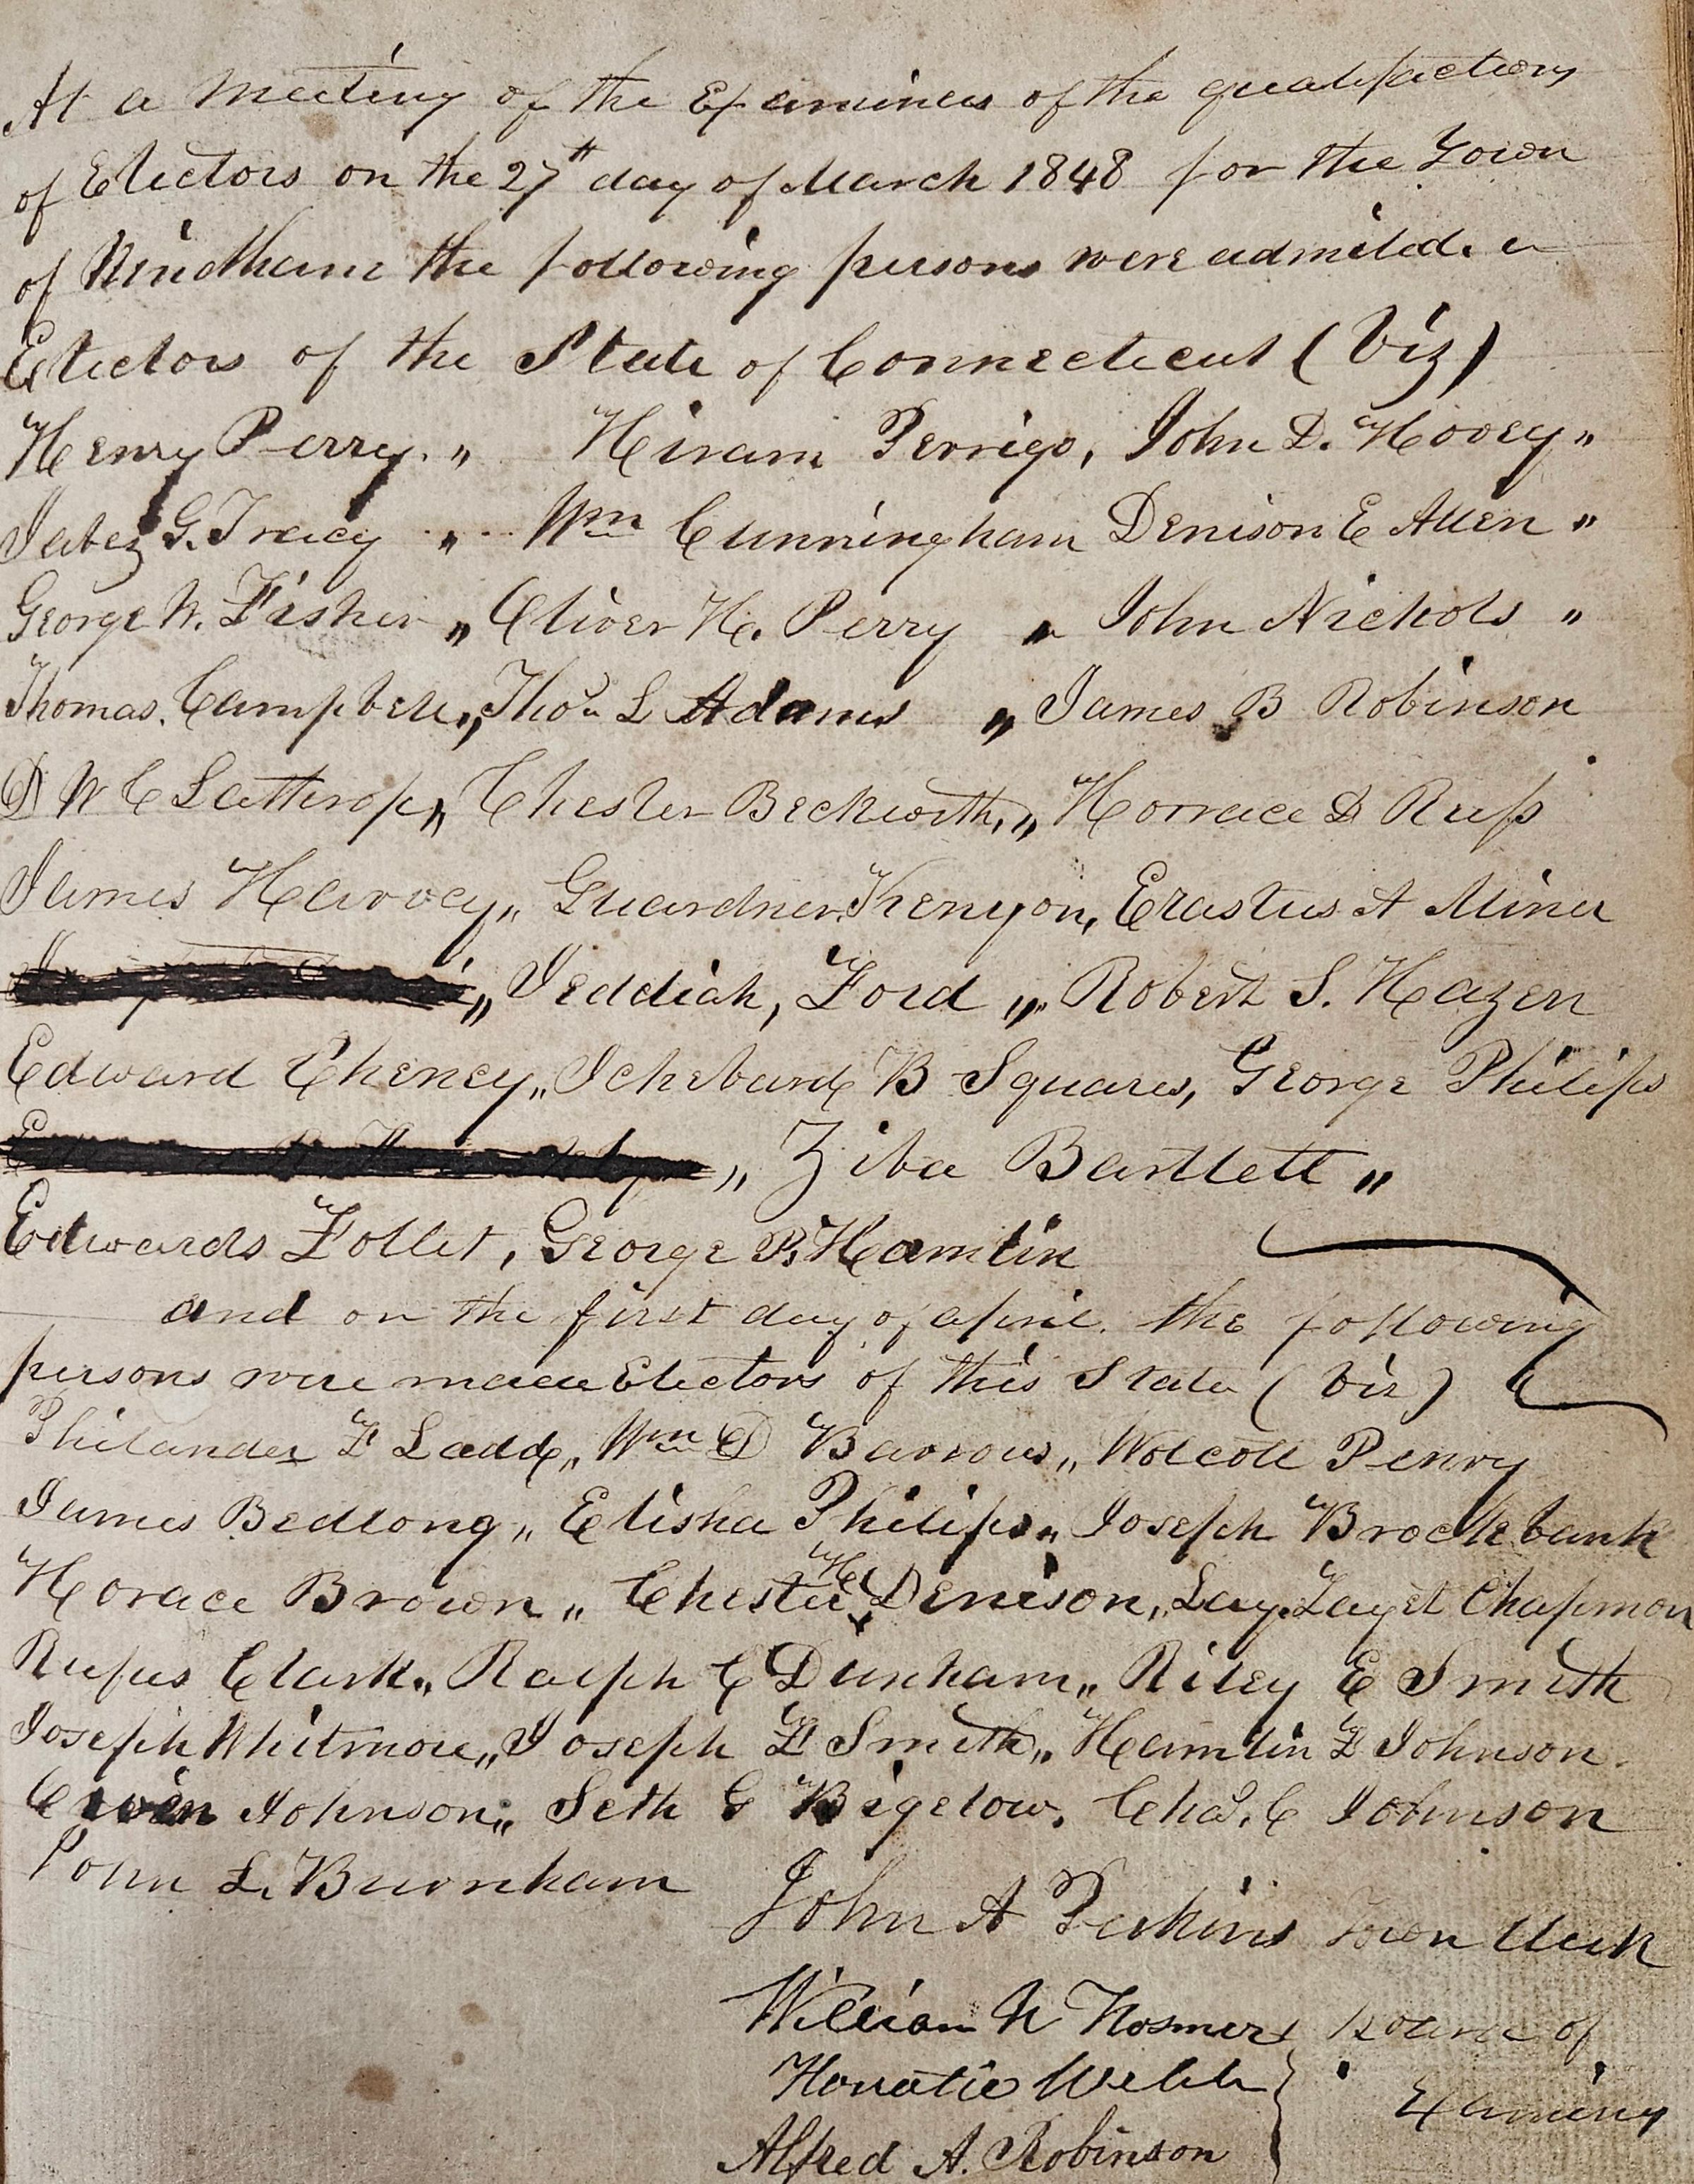 At a Meeting of the Examiners of the qualifactions
of Electors on the 27th day of March 1848 for the Town
of Windham the following persons were admited
Electors of the State of Connecticut (Viz)
Henry Perry. " Hiram Perrigo, John D. Hovey "
Jabez G. Tracy " Wm Cunningham Denison E Allen "
George W. Fisher " Oliver H. Perry " John Nichols "
Thomas. Campbell, " Thos L Adams " James B Robinson
D W C Lathrop " Chester Beckwith, " Horrace D Russ
James Harvey " Guardner Kenyon, Erastus A Miner
" Jeddiah, Ford " Robert S. Hazen
Edward Cheney " Ichebard B Squares, George Philips
" Ziba Bartlett "
Edwards Follet, George P. Hamlin
and on the first day of april. the following
persons were made Electors of this State (Viz)
Philander F Ladd " Wm D Barrows " Wolcott Perry
James Bedlong " Elisha Philips " Joseph Brocklebank
Horace Brown " Chester H Denison " Lay Chapman
Rufus Clark " Ralph C Dunham " Riley E Smith
Joseph Whitmore " Joseph F Smith " Hamlin F Johnson.
Johnson " Seth G Bigelow. Chas. C Johnson
John L. Burnham
John A Perkins Town Clerk
William W Hosmer Board of
Horatio Webb
Alfred A. Robinson